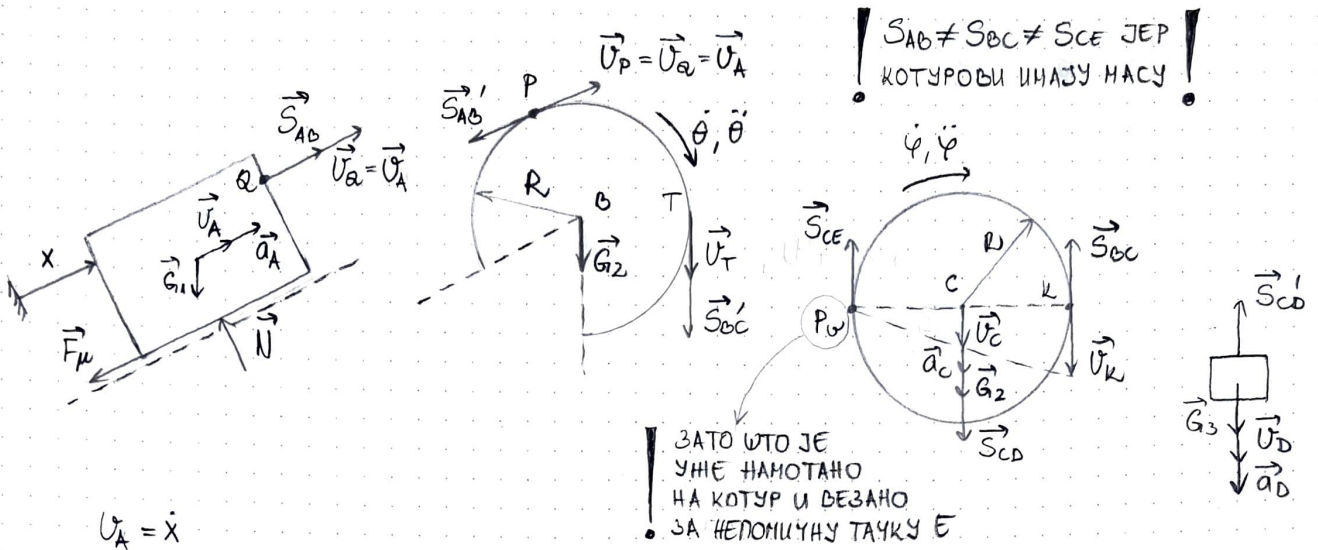 S⃗AB
Q
v⃗Q = v⃗A
v⃗A
a⃗A
x
G⃗1
F⃗μ
N⃗
vA = ẋ
v⃗P = v⃗Q = v⃗A
P
S⃗AB'
θ̇, θ̈
R
B
T
G⃗2
v⃗T
S⃗BC'
! SAB ≠ SBC ≠ SCE ЈЕР !
КОТУРОВИ ИМАЈУ МАСУ
φ̇, φ̈
S⃗CE
R
S⃗BC
C
K
Pv
v⃗C
a⃗C
G⃗2
v⃗K
S⃗CD
! ЗАТО ШТО ЈЕ
УЖЕ НАМОТАНО
НА КОТУР И ВЕЗАНО
ЗА НЕПОМИЧНУ ТАЧКУ E
S⃗CD'
G⃗3
v⃗D
a⃗D